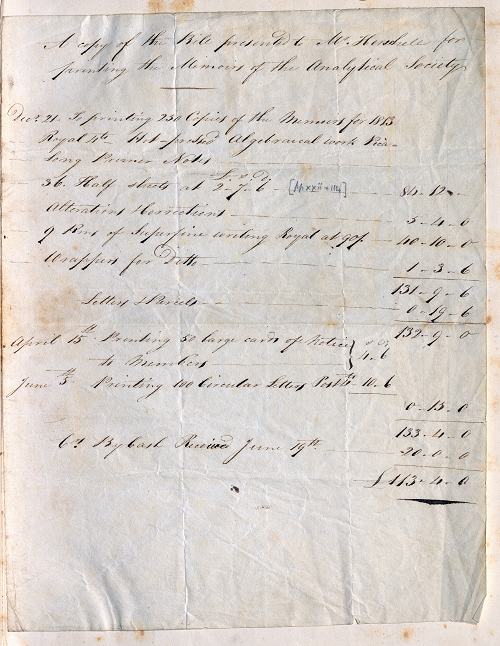 A copy of the Bill presented to Mr Herschell for
printing the Memoirs of the Analytical Society
Decr 21 To printing 250 Copies of the Memoirs for 1813
Royal 4to Hot-pressed Algebraical work Pica
Long Primer Notes
£ s D
36. Half sheets at 2-7-6 [pp xxii + 114] 84-12-
Alterations & Corrections 5-4-0
9 Rms of Superfine writing Royal at 90/- 40-10-0
Wrappers for Ditto 1-3-6
131-9-6
Letters & Parcels 0-19-6
132-9-0
April 15th Printing 50 large cards of Notice s D
to Members } 4-6
June 3d Printing 100 Circular Letters Post 4to 10-6
0-15-0
133-4-0
Cr By Cash Received June 19th 20-0-0
£113-4-0